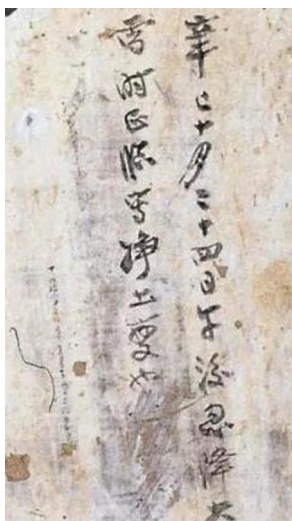 辛巳十月二十四日午後忽降大
雪時正臨寫淨土變也